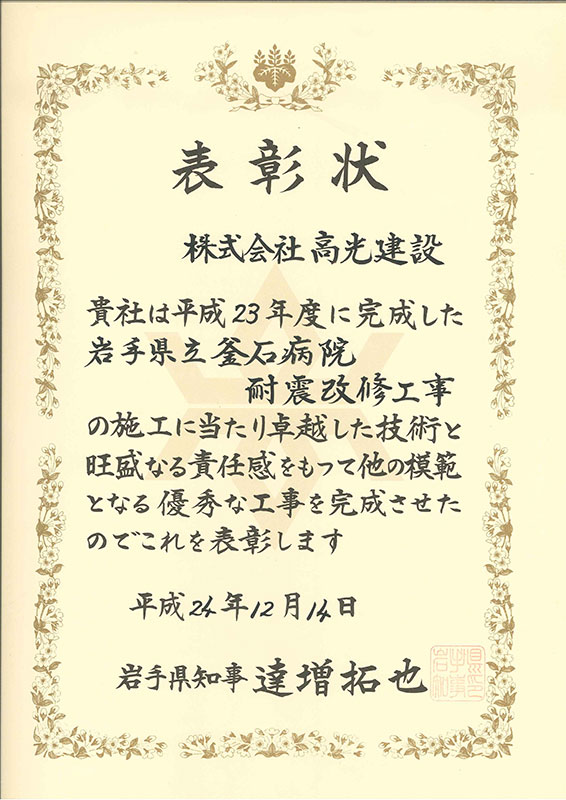 表彰状
株式会社高光建設
貴社は平成23年度に完成した
岩手県立釜石病院
耐震改修工事
の施工に当たり卓越した技術と
旺盛なる責任感をもって他の模範
となる優秀な工事を完成させた
のでこれを表彰します
平成24年12月14日
岩手県知事 達増拓也